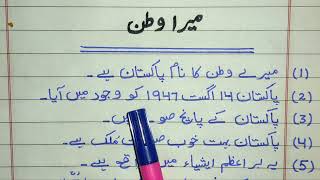 میرا وطن
(1) میرے وطن کا نام پاکستان ہے۔
(2) پاکستان 14 اگست 1947 کو وجود میں آیا۔
(3) پاکستان کے پانچ صو
(4) پاکستان بہت خوب ملک ہے۔
(5) یہ براعظم ایشیاء میں ہے۔